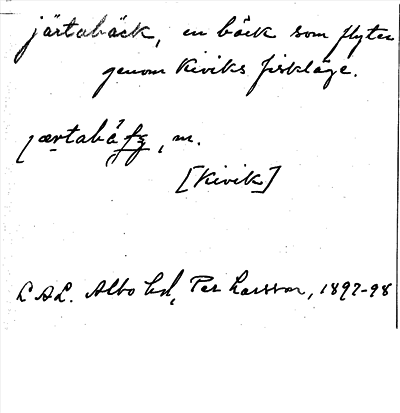 järtabäck, en bäck som flyter
genom Kiviks fiskläge.
, m.
[Kivik]
LAL. Albo hd, Per Larsson, 1897-98